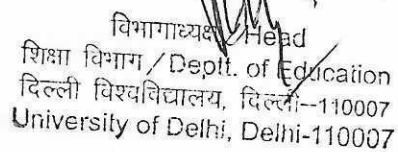 विभागाध्यक्ष / Head
शिक्षा विभाग / Deptt. of Education
दिल्ली विश्वविद्यालय, दिल्ली--110007
University of Delhi, Delhi-110007